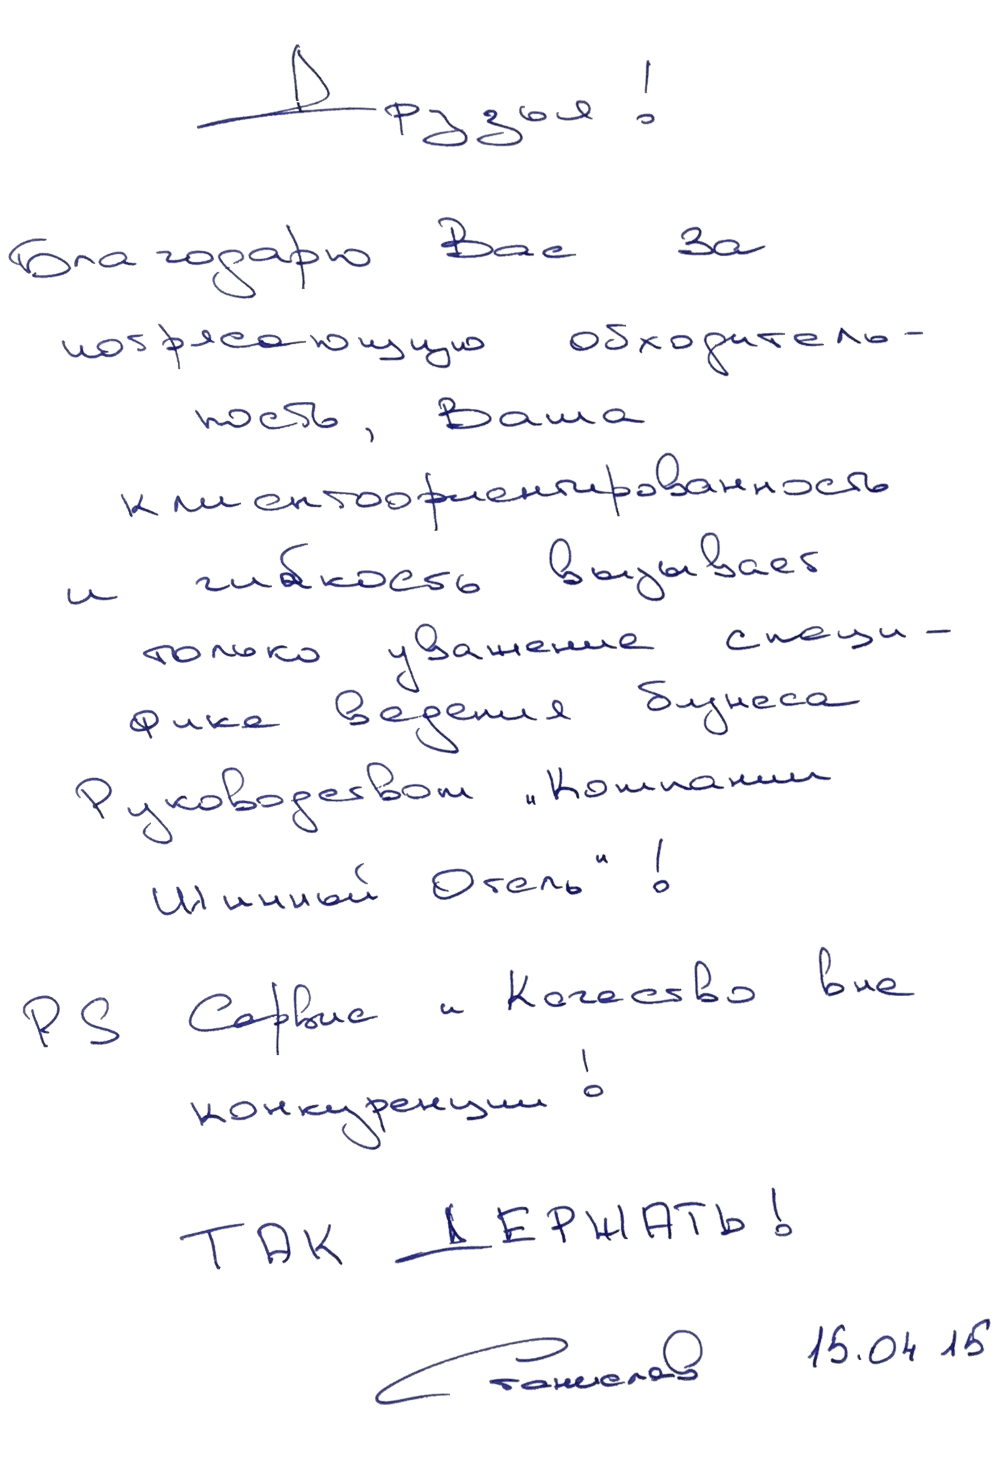 Друзья!
Благодарю Вас за
потрясающую обходитель-
ность, Ваша
клиентоориентированность
и гибкость вызывает
только уважение специ-
фике ведения бизнеса
Руководством "Компании
Шинный Отель"!
PS Сервис и Качество вне
конкуренции!
ТАК ДЕРЖАТЬ!
Станислав 15.04 15